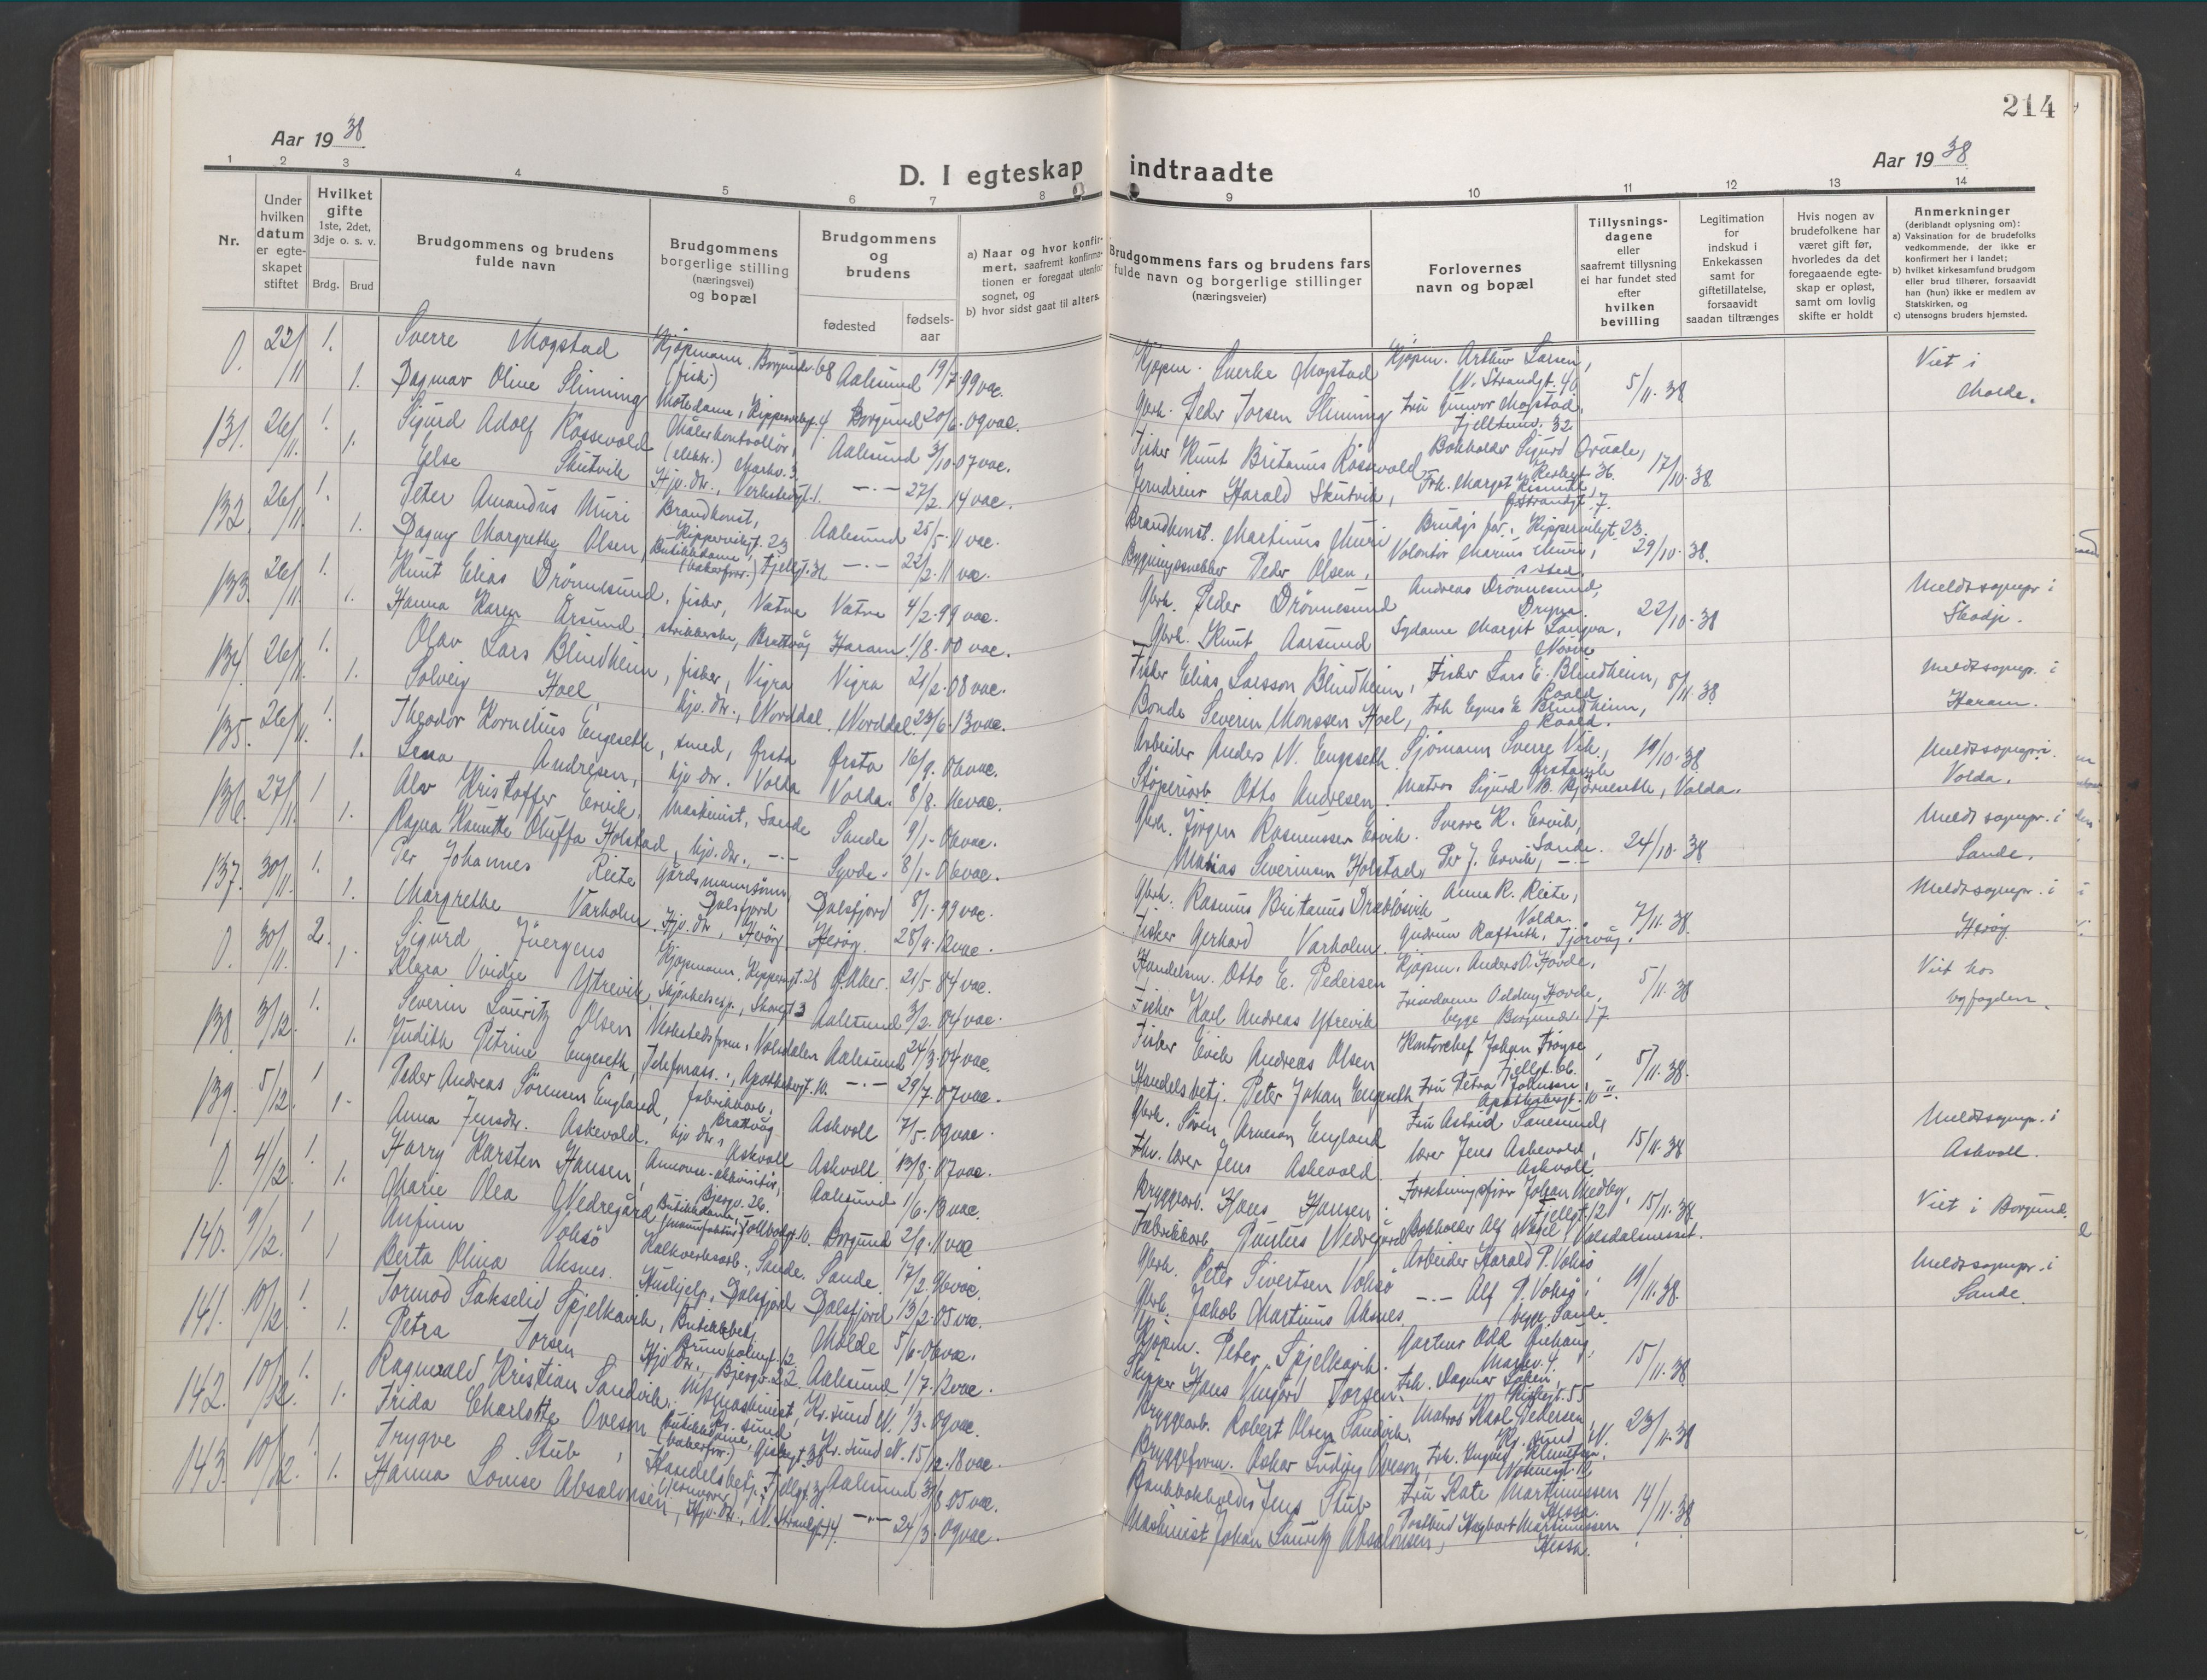 214
Aar 19 38
Aar 19 38
D. I egteskap indtraadte
1 2 3 4 5 6 7 8 9 10 11 12 13 14
Nr.
Under hvilken datum er egteskapet stiftet
Hvilket gifte 1ste, 2det, 3dje o. s. v.
Brdg. Brud
Brudgommens og brudens fulde navn
Brudgommens borgerlige stilling (næringsvei) og bopæl
Brudgommens og brudens
fødested
fødselsaar
a) Naar og hvor konfirmert, saafremt konfirmationen er foregaat utenfor sognet, og
b) hvor sidst gaat til alters.
Brudgommens fars og brudens fars fulde navn og borgerlige stillinger (næringsveier)
Forlovernes navn og bopæl
Tillysningsdagene eller saafremt tillysning ei har fundet sted efter hvilken bevilling
Legitimation for indskud i Enkekassen samt for giftetillatelse, forsaavidt saadan tiltrænges
Hvis nogen av brudefolkene har været gift før, hvorledes da det foregaaende egteskap er opløst, samt om lovlig skifte er holdt
Anmerkninger (deriblandt oplysning om):
a) Vaksination for de brudefolks vedkommende, der ikke er konfirmert her i landet;
b) hvilket kirkesamfund brudgom eller brud tilhører, forsaavidt han (hun) ikke er medlem av Statskirken, og
c) utensogns bruders hjemsted.
0. 22/11 1. Sverre Mogstad Kjøpmann (fisk.) Borgundv. 68 Aalesund 19/7-99 vac. Kjøpm. Sverke Mogstad Kjøpm. Arthur Larsen, N. Strandgt. 40 5/11. 38 Viet i
1. Dagmar Oline Slinning Motedame, Kippervikgt. 4 Borgund 20/6-09 vac. Gbrk. Peder Torsen Slinning Fru Gunvor Mogstad, Fjelltunv. 32 Molde.
131. 26/11. 1. Sigurd Adolf Røssevold Målerkontrollør, (elektr.) Aalesund 3/10-07 vac. Fisker Knut Britanus Røssevold Bokholder Sigurd 17/10-38
1. Else Skutvik Hj. dtr., Verkstedgt. 1. -"- 27/2. 14 vac. Harald Skutvik, Frk. Margot
132. 26/11. 1. Peter Amandus Muri Brandkonst., Kippervikgt. 23 Aalesund 25/5-11 vac. Brandkonst. Martinus Muri Brudgs far, Kippervikgt. 23. 29/10-38.
1. Dagny Margrethe Olsen, Butikkdame, (bakerforr.) Fjellgt. 31 -"- 22/2-11 vac. Bygningssnekker Peder Olsen, Volontør Marius Muri, s. sted.
133. 26/11. 1. Knut Elias Drönnesund, fisker, Vatne Vatne 4/2-99 vac. Gbrk. Peder Drönnesund Andreas Drönnesund, Dryna. 22/10-38 Meldt sognepr. i
1. Hanna Karen Årsund, strikkerske, Brattvåg Haram 1/8-00 vac. Gbrk. Knut Aarsund Sydame Margit Longva, Skodje.
134. 26/11. 1. Olav Lars Blindheim, fisker, Vigra Vigra 21/2-08 vac. Fisker Elias Larsson Blindheim, Fisker Lars E. Blindheim, Roald 8/11-38 Meldt sognepr. i
1. Solveig Hoel, hjv. dtr., Norddal Norddal 23/6-13 vac. Bonde Severin Monssen Hoel, Frk Egnes E Blindheim, Roald. Haram.
135. 26/11. 1. Theodor Kornelius Engeseth, smed, Ørsta Ørsta 16/9. 06 vac. Arbeider Anders N. Engeseth. Sjömann Sverre Vik, Ørstavik 19/10-38 Meldt sognepr. i
1. Lena Andresen, hjv. dtr. Volda Volda. 8/8. 16 vac. Støperiarb. Otto Andresen. Matros Sigurd B. Bjørneseth, Volda. Volda.
136. 27/11. 1 Alv Kristoffer Ervik, Maskinist, Sande Sande 9/1-06 vac. Gbrk. Jörgen Rasmussen Ervik. Sverre K. Ervik, Sande. 24/10-38 Meldt sognepr. i
1. Ragna Hanette Oluffa Holstad, hjv. dtr. -"- Syvde. 8/1-06 vac. Matias Severinsen Holstad, Per J. Ervik, -"- Sande.
137. 30/11. 1. Per Johannes Reite Gårdsmannssønn, Dalsfjord Dalsfjord 8/1-99 vac. Gbrk. Rasmus Britanus Dravløsvik Anna R. Reite, Volda. 7/11-38. Meldt sognepr. i
1. Margrethe Varholm. Hjv. dtr., Herøy Herøy. 28/4-12 vac. Fisker Gerhard Varholm. Gudrun Raftseth, Tjørvåg. Herøy
0. 30/11. 2. Sigurd Juergens Kjøpmann. Kippervgt. 28 Ø. Aker. 21/5-84 vac. Handelsm. Otto E. Pedersen Kjøpm. Anders O. Hovde, 5/11-38 Viet hos
1. Klara Ovidie Ytrevik, Skoregt 3 Aalesund 3/2. 04 vac. Fisker Karl Andreas Ytrevik Oddny Hovde, begge Borgundv. 17. byfogden.
138 3/12. 1. Severin Lauritz Olsen Verkstedsform., Volsdalen Aalesund 24/3-04 vac. Fisker Eivik Andreas Olsen Kontorchef Johan Frøyse, Fjellgt. 6b. 5/11-38.
1. Judith Petrine Engeseth, Telefonass., Apothekergt. 10. -"- 29/7-07 vac. Handelsbetj. Peter Johan Engeseth Fru Petra Johnsen, Apothekergt. 10
139. 5/12. 1 Peder Andreas Sörensen Engeland, fabrikkarb., Brattvåg Askvoll 7/5-09 vac. Gbrk. Sören Arneson Engeland Fru Astrid Sauesund 15/11-38 Meldt sognepr. i
1- Anna Jensdtr. Askevold. hjv dtr., Askvoll Askvoll. 13/8-07 vac. Fhv. lærer Jens Askevold. lærer Jens Askevold, Askvoll Askvoll.
0. 4/12. 1. Harry Karsten Hansen, Annonse-akkvisitør, Bjergv. 26. Aalesund 1/6. 13 vac. Bryggearb. Hans Hansen. Forretningsfører Johan Medbøy, Fjellgt. 12 15/11-38. Viet i Borgund.
1. Marie Olea Nedregård Butikkdame, (manufaktur) Tollbodgt. 10. Borgund 2/9. 11 vac Fabrikkarb Paulus Nedregård Bokholder Alf Nagel, Volsdalsneset.
140. 9/12. 1 Anfinn Voksö Kalkverksarb., Sande. Sande. 17/2. 96 vac. Gbrk. Peter Sivertsen Voksö Arbeider Harald P. Voksö 19/11-38. Meldt sognepr. i
1 Berta Olina Aksnes. Hushjelp, Dalsfjord Dalsfjord 13/2-05 vac. Gbrk. Jakob Martinus Aksnes. -"- Alf P. Voksö, begge Sande. Sande.
141. 10/12. 1. Tormod Sakselid Spjelkavik, Butikkbetj. Brunholmgt. 12. Molde 5/6-06 vac. Kjøpm. Peter Spjelkavik. Gartner Odd 15/11-38
1. Petra Torsen Hjv. dtr., Bjergv. 22. Aalesund 1/7. 12 vac. Skipper Hans Vingård Torsen. Frk. Dagmar
142. 10/12. 1. Ragnvald Kristian Sandvik, Maskinist, Kr. sund Kr. sund N. 1/3-09 vac. Bryggearb. Robert Olsen Sandvik. Matros Karl Pedersen Kr. sund N. 23/11-38
1. Frida Charlotte Ovesen Butikkdame, (bakerforr.) Kr. sund N. 15/12. 18 vac. Bryggeform. Oskar Ludvig Ovesen, Frk. Ingrid
143. 10/12. 1 Trygve Stub, Handelsbetj. (jernvarer) Fjellgt. Aalesund 3/8 05 vac. Bankbokholder Jens Stub Fru Kate Martinussen Hessa. 14/11-38
1. Hanna Lovise Absalonsen, Hjv. dtr., N. Strandgt. 14. -"- 24/3-09 vac. Maskinist Johan Lauritz Absalonsen, Postbud Hagbart Martinussen Hessa.